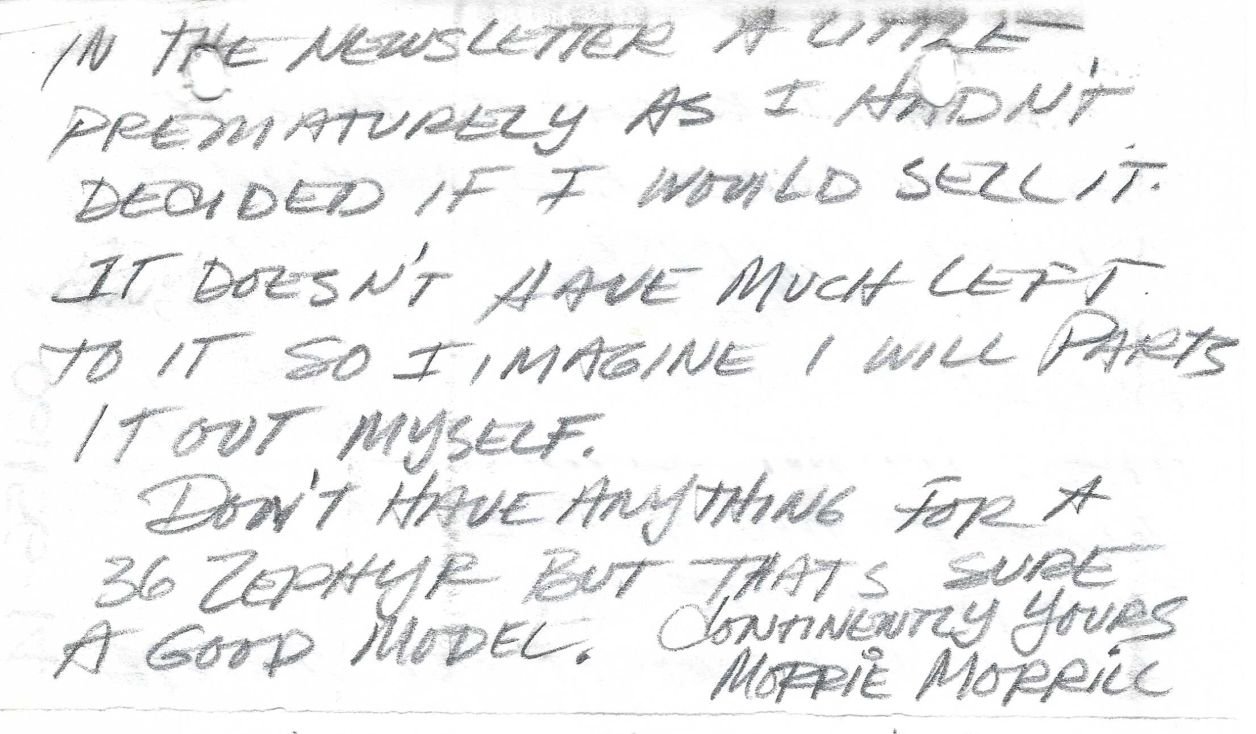 IN THE NEWSLETTER A LITTLE
PREMATURELY AS I HADN'T
DECIDED IF I WOULD SELL IT.
IT DOESN'T HAVE MUCH LEFT
TO IT SO I IMAGINE I WILL PARTS
IT OUT MYSELF.
DON'T HAVE ANYTHING FOR A
36 ZEPHYR BUT THATS SURE
A GOOD MODEL. CONTINENTLY YOURS
MORRIE MORRILL